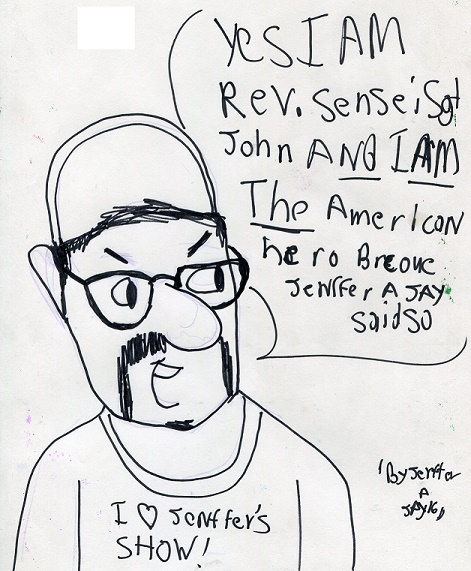 YES I AM
Rev. Sensei Sgt
John AND I AM
The American
hero Breoue
Jenffer A JAY
said so
I ♡ Jenffer's
SHOW!
"By Jenffer
A
JAY16"